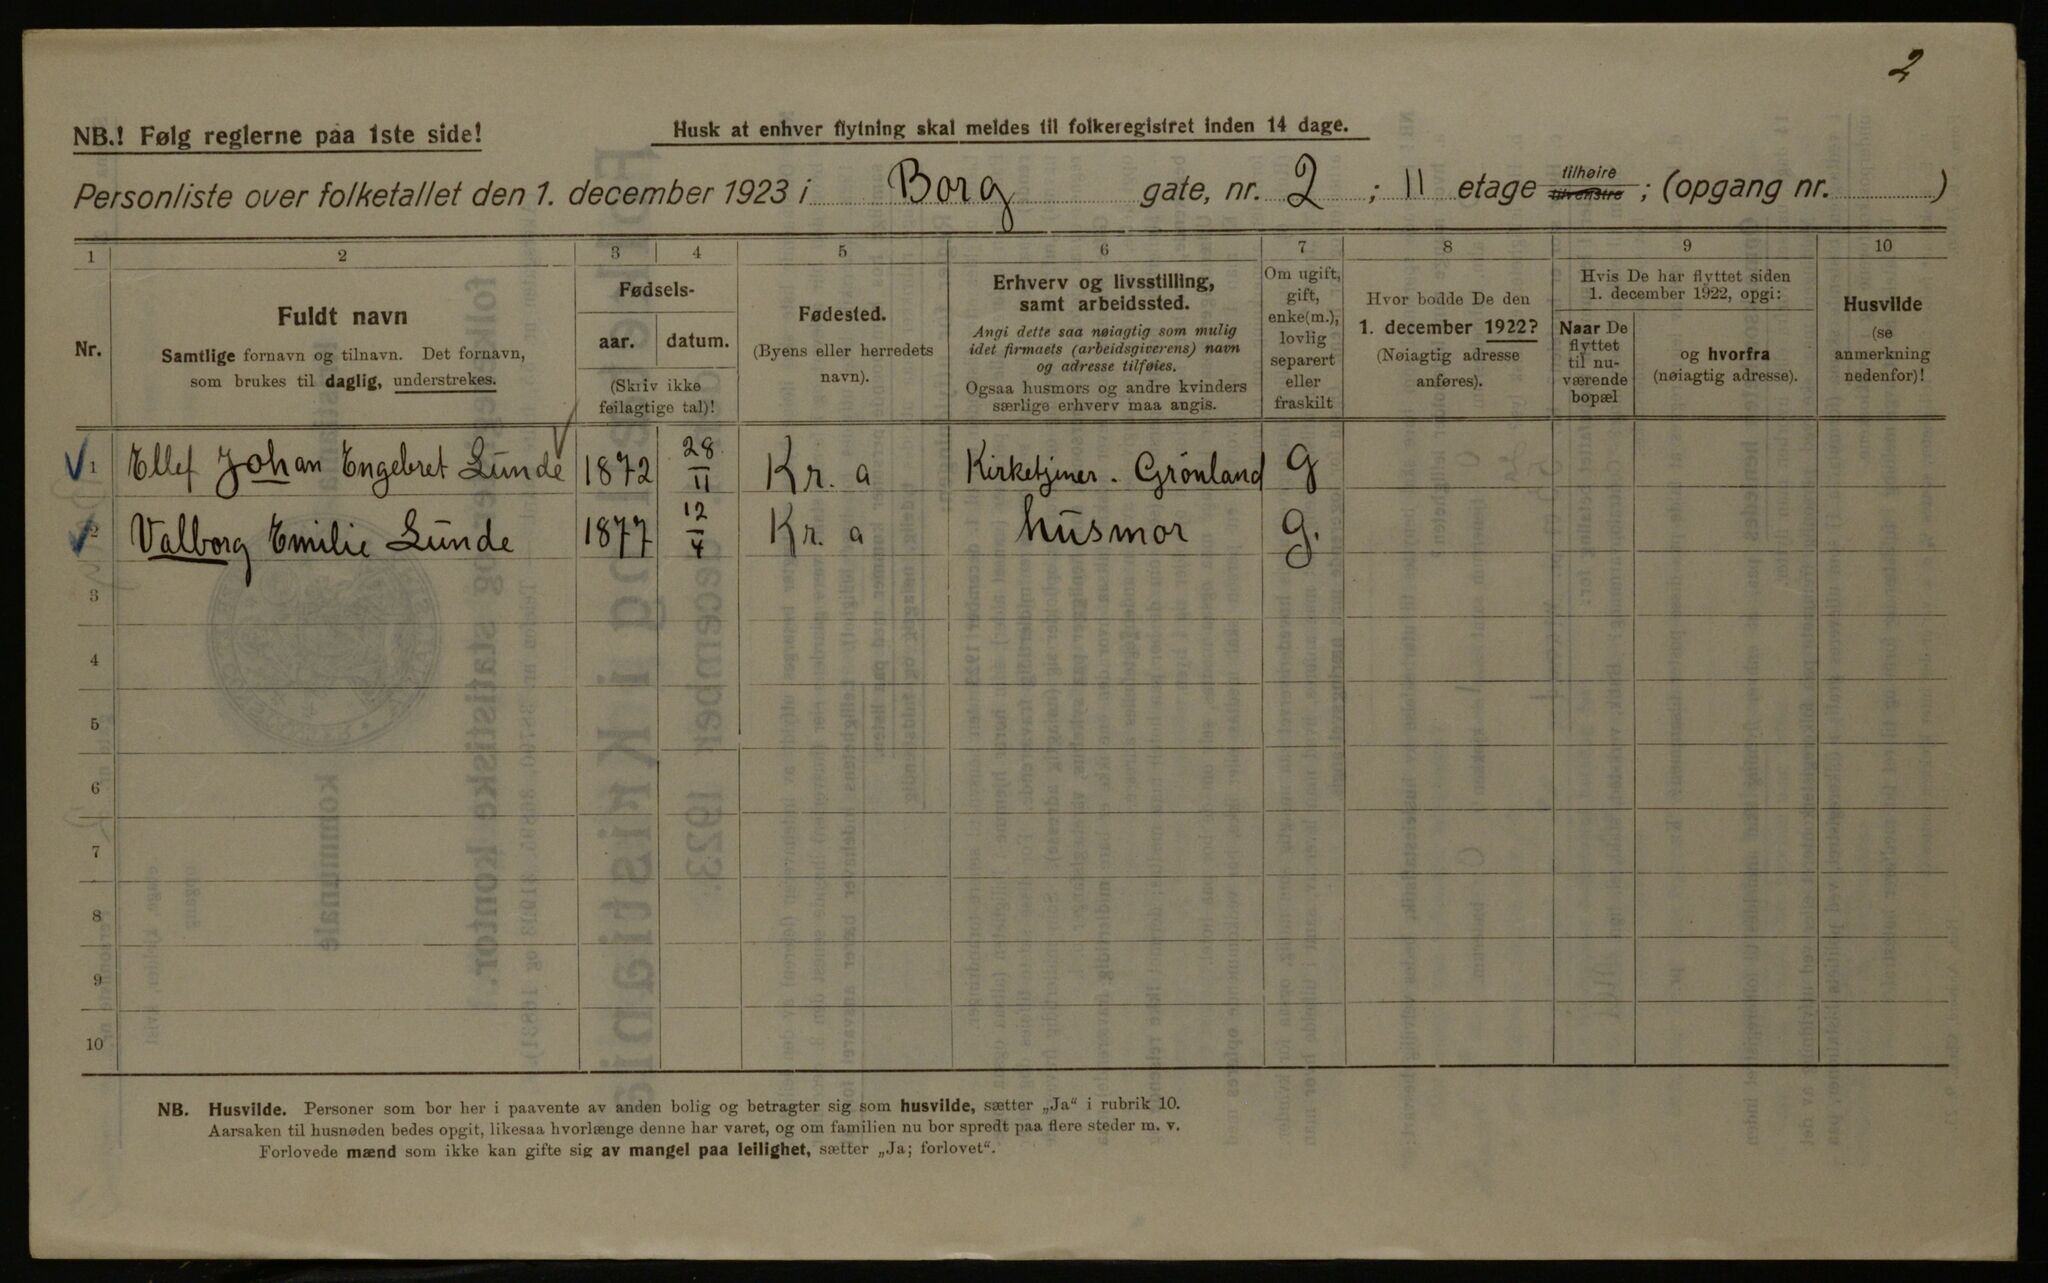 2
NB.! Følg reglerne paa 1ste side!
Husk at enhver flytning skal meldes til folkeregistret inden 14 dage.
Personliste over folketallet den 1. december 1923 i Borg gate, nr. 2 ; II etage tilhøire tilvenstre ; (opgang nr. )
1 2 3 4 5 6 7 8 9 10
Nr.
Fuldt navn
Samtlige fornavn og tilnavn. Det fornavn,
som brukes til daglig, understrekes.
Fødsels-
aar. datum.
(Skriv ikke
feilagtige tal)!
Fødested.
(Byens eller herredets
navn).
Erhverv og livsstilling,
samt arbeidssted.
Angi dette saa nøiagtig som mulig
idet firmaets (arbeidsgiverens) navn
og adresse tilføies.
Ogsaa husmors og andre kvinders
særlige erhverv maa angis.
Om ugift,
gift,
enke(m.),
lovlig
separert
eller
fraskilt
Hvor bodde De den
1. december 1922?
(Nøiagtig adresse
anføres).
Hvis De har flyttet siden
1. december 1922, opgi:
Naar De
flyttet
til nu-
værende
bopæl
og hvorfra
(nøiagtig adresse).
Husvilde
(se
anmerkning
nedenfor)!
1 Ellef Johan Engebret Lunde 1872 28/11 Kr. a Kirketjener. Grönland G
2 Valborg Emilie Lunde 1877 12/4 Kr. a husmor G.
3
4
5
6
7
8
9
10
NB. Husvilde. Personer som bor her i paavente av anden bolig og betragter sig som husvilde, sætter „Ja“ i rubrik 10.
Aarsaken til husnøden bedes opgit, likesaa hvorlænge denne har varet, og om familien nu bor spredt paa flere steder m. v.
Forlovede mænd som ikke kan gifte sig av mangel paa leilighet, sætter „Ja; forlovet“.